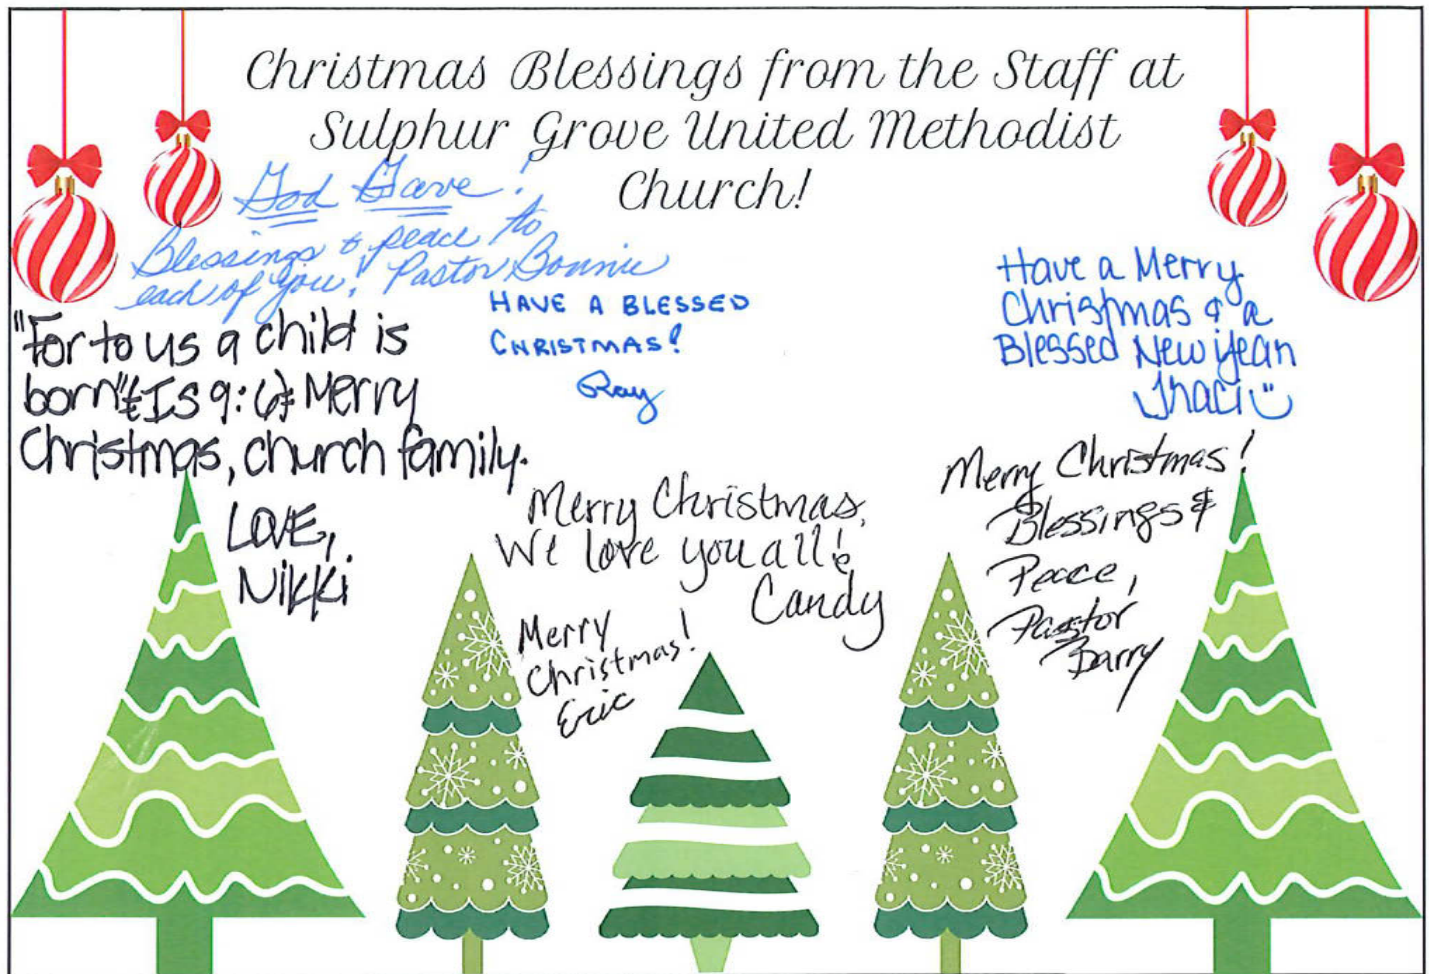 Christmas Blessings from the Staff at
Sulphur Grove United Methodist
Church!
God Gave!
Blessings & peace to
each of you! Pastor Bonnie
HAVE A BLESSED
CHRISTMAS!
Ray
Have a Merry
Christmas & a
Blessed New Year
Traci
"For to us a child is
born" (Is 9:6) Merry
Christmas, church family.
LOVE,
Nikki
Merry Christmas,
We love you all!
Candy
Merry
Christmas!
Eric
Merry Christmas!
Blessings &
Peace,
Pastor
Barry